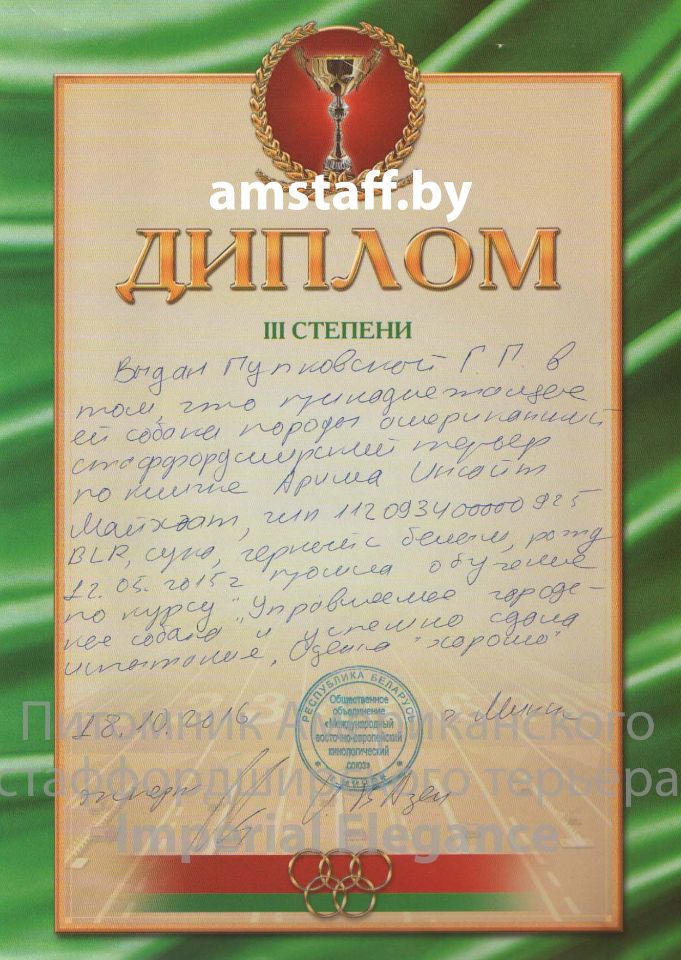 amstaff.by
ДИПЛОМ
III СТЕПЕНИ
Выдан Пупковской Г.П. в
том, что принадлежащая
ей собака породы американский
стаффордширский терьер
по кличке Арима Инсайт
чип 112093400000925
BLR, сука, черный с белым, рожд
12.05.2015г прошла обучение
по курсу "Управляемая городс-
кая собака" и успешно сдала
испытания, Оценка "хорошо"
18.10.2016 г. Минск
РЕСПУБЛИКА БЕЛАРУСЬ
Общественное
объединение
«Международный
восточно-европейский
кинологический
союз»
г. Минск
Питомник Американского
стаффордширского терьера
эксперт
Imperial Elegance